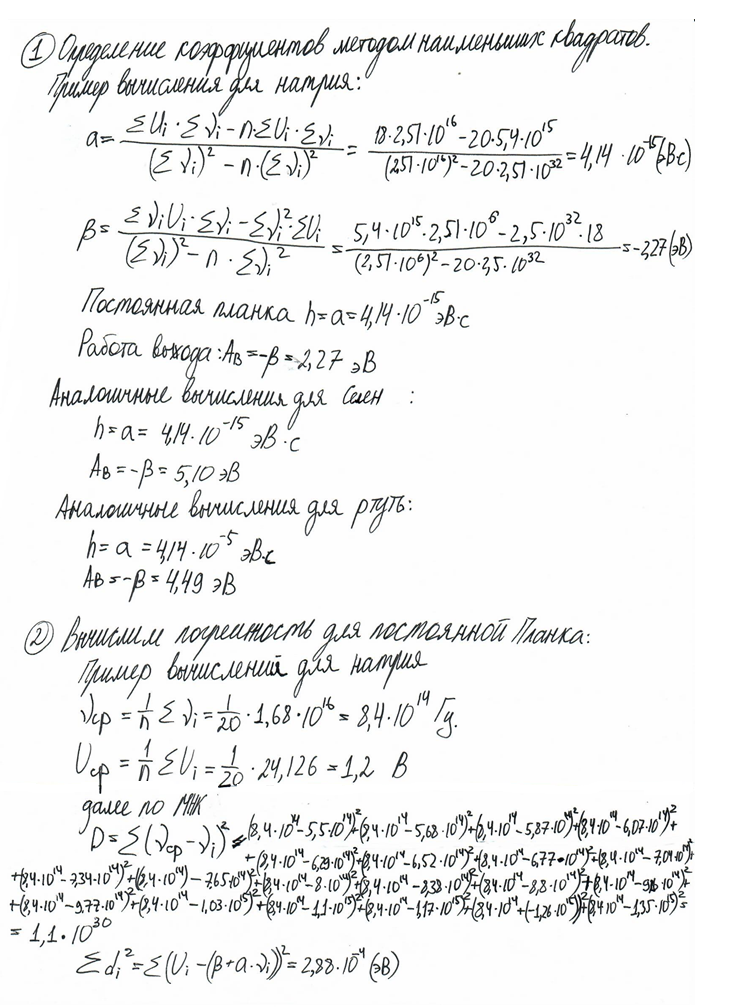 ① Определение коэффициентов методом наименьших квадратов.
Пример вычисления для натрия:
a = (ΣUi · Σνi − n·ΣUi · Σνi) / ((Σνi)² − n·(Σνi)²) = (18·2,51·10^16 − 20·5,4·10^15) / ((2,51·10^16)² − 20·2,51·10^32) = 4,14 · 10^-15 (эВ·с)
β = (ΣνiUi · Σνi − Σνi² · ΣUi) / ((Σνi)² − n · Σνi²) = (5,4·10^15 · 2,51·10^6 − 2,5·10^32 · 18) / ((2,51·10^6)² − 20·2,5·10^32) = −2,27 (эВ)
Постоянная планка h = a = 4,14·10^-15 эВ·с
Работа выхода: Aв = −β = 2,27 эВ
Аналошчные вычисления для Селен :
h = a = 4,14·10^-15 эВ·с
Aв = −β = 5,10 эВ
Аналошчные вычисления для ртуть:
h = a = 4,14·10^-5 эВ·с
Aв = −β = 4,49 эВ
② Вычислим погрешность для постоянной Планка:
Пример вычислений для натрия
νср = 1/n Σνi = 1/20 · 1,68·10^16 = 8,4·10^14 Гц.
Uср = 1/n ΣUi = 1/20 · 24,126 = 1,2 В
далее по МНК
D = Σ(νср − νi)² = (8,4·10^14 − 5,5·10^14)² + (8,4·10^14 − 5,68·10^14)² + (8,4·10^14 − 5,87·10^14)² + (8,4·10^14 − 6,07·10^14)² +
+ (8,4·10^14 − 6,29·10^14)² + (8,4·10^14 − 6,52·10^14)² + (8,4·10^14 − 6,77·10^14)² + (8,4·10^14 − 7,04·10^14)² +
+ (8,4·10^14 − 7,34·10^14)² + (8,4·10^14) − 7,65·10^14)² + (8,4·10^14 − 8·10^14)² + (8,4·10^14 − 8,38·10^14)² + (8,4·10^14 − 8,8·10^14)² + (8,4·10^14 −
+ (8,4·10^14 − 9,77·10^14)² + (8,4·10^14 − 1,03·10^15)² + (8,4·10^14 − 1,1·10^15)² + (8,4·10^14 − 1,17·10^15)² + (8,4·10^14 + (−1,26·10^15))² + (8,4·10^14 − 1,35·10^15)² =
= 1,1·10^30
Σdi² = Σ(Ui − (β + a·νi))² = 2,88·10^-4 (эВ)